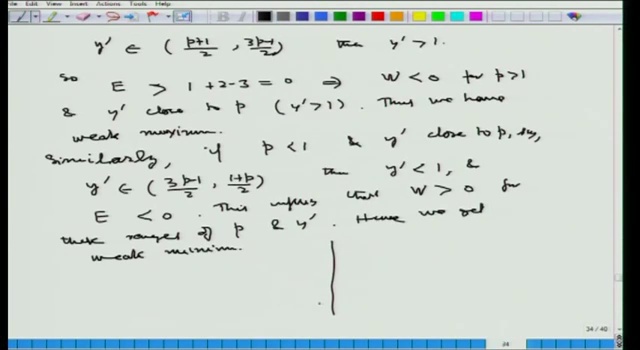 File View Insert Actions Tools Help
y' ∈ ( p+1/2 , 3p-1/2 ) then y' > 1.
so E > 1 + 2 - 3 = 0 ⇒ W < 0 for p > 1
& y' close to p ( y' > 1 ) . Thus we have
weak maximum.
Similarly, if p < 1 & y' close to p, say,
y' ∈ ( 3p-1/2 , 1+p/2 ) then y' < 1, &
E < 0 . This implies that W > 0 for
these ranges of p & y' . Hence we get
weak minimum.
34 / 40
34